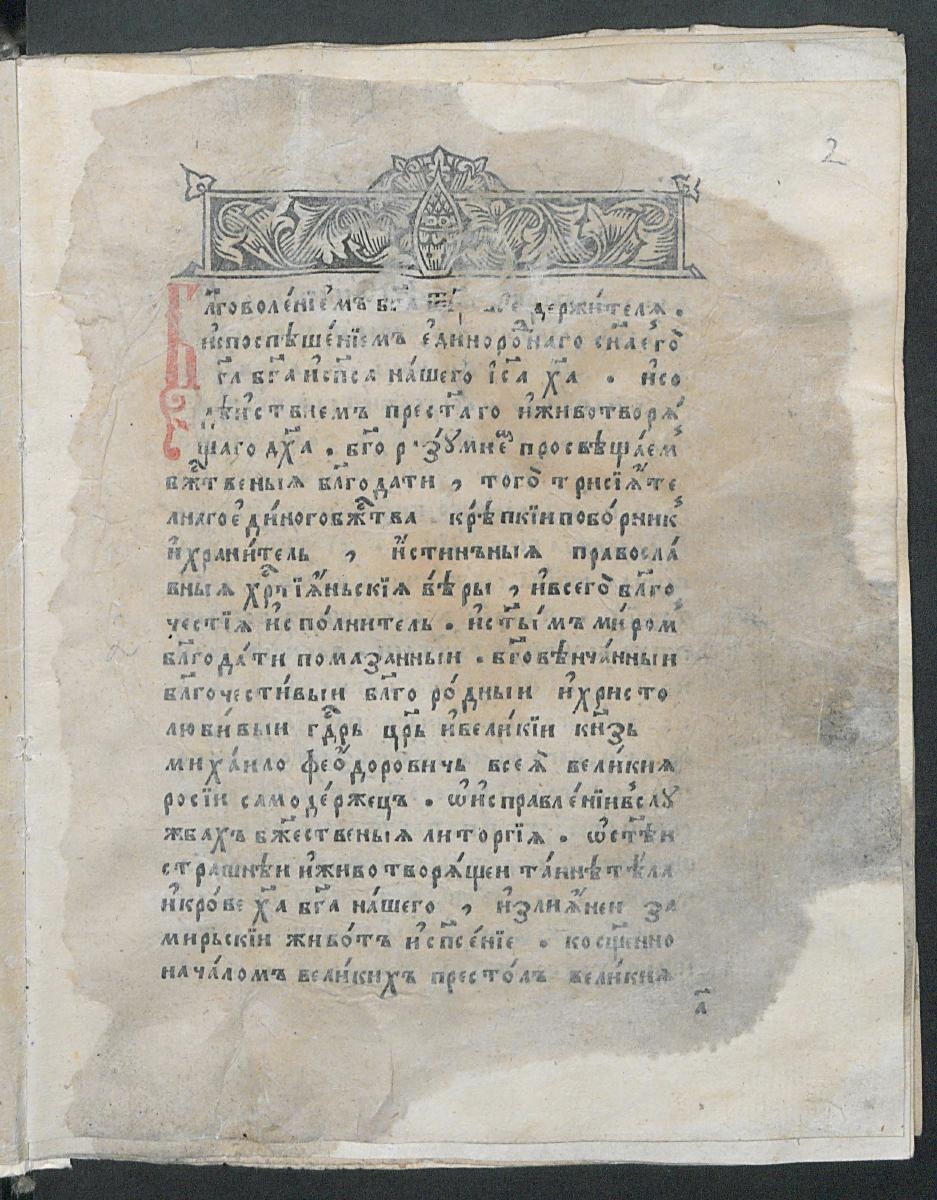 2
Бл҃говоле́нїемъ бг҃а держи́телѧ .
и҆споспѣше́нїемъ є҆диноро́днаго сн҃а є҆го̀
гд҃а бг҃а и҆сп҃са на́шего і҆с҃а хр҃а . и҆со
дѣ́йствиемъ прест҃а́го и҆животворѧ́
щаго дх҃а . бг҃о ра́зꙋмнѣ просвѣща́ем
бж҃твеныѧ бл҃года́ти , того̀ трисїѧ́те
лнаго є҆ди́ногобж҃тва крѣ́пкїи побо́рник
и҆храни́тель , и҆́стинъныѧ правосла́
вныѧ хрⷭ҇тїѧ́ньскїѧ вѣ́ры , и҆всего̀ бл҃го
че́стїѧ и҆спо́лнитель . и҆ст҃ы́мъ ми́ром
бл҃года́ти пома́занныи . бг҃овѣнча́нныи
бл҃гочести́выи бл҃го ро́дныи и҆христо
люби́выи гдⷭ҇рь цр҃ь и҆вели́кїи кн҃зь
миха́ило ѳео́дорович̾ всеѧ̀ вели́киѧ
росїи самоде́ржецъ . ѡ҆и҆справле́нїи в̾слꙋ́
жбахъ бж҃ественыѧ литоргїѧ . ѡ҆ст҃ѣ́и
стра́шнѣи и҆животворѧ́щеи та́ине тѣ́ла
и҆кро́ве хр҃а бг҃а на́шего , и҆злиѧ́неи за
мирьскїи живо́тъ и҆сп҃се́нїе . косщ҃енно
нача́ломъ вели́кихъ престо́лъ вели́киѧ
а҃